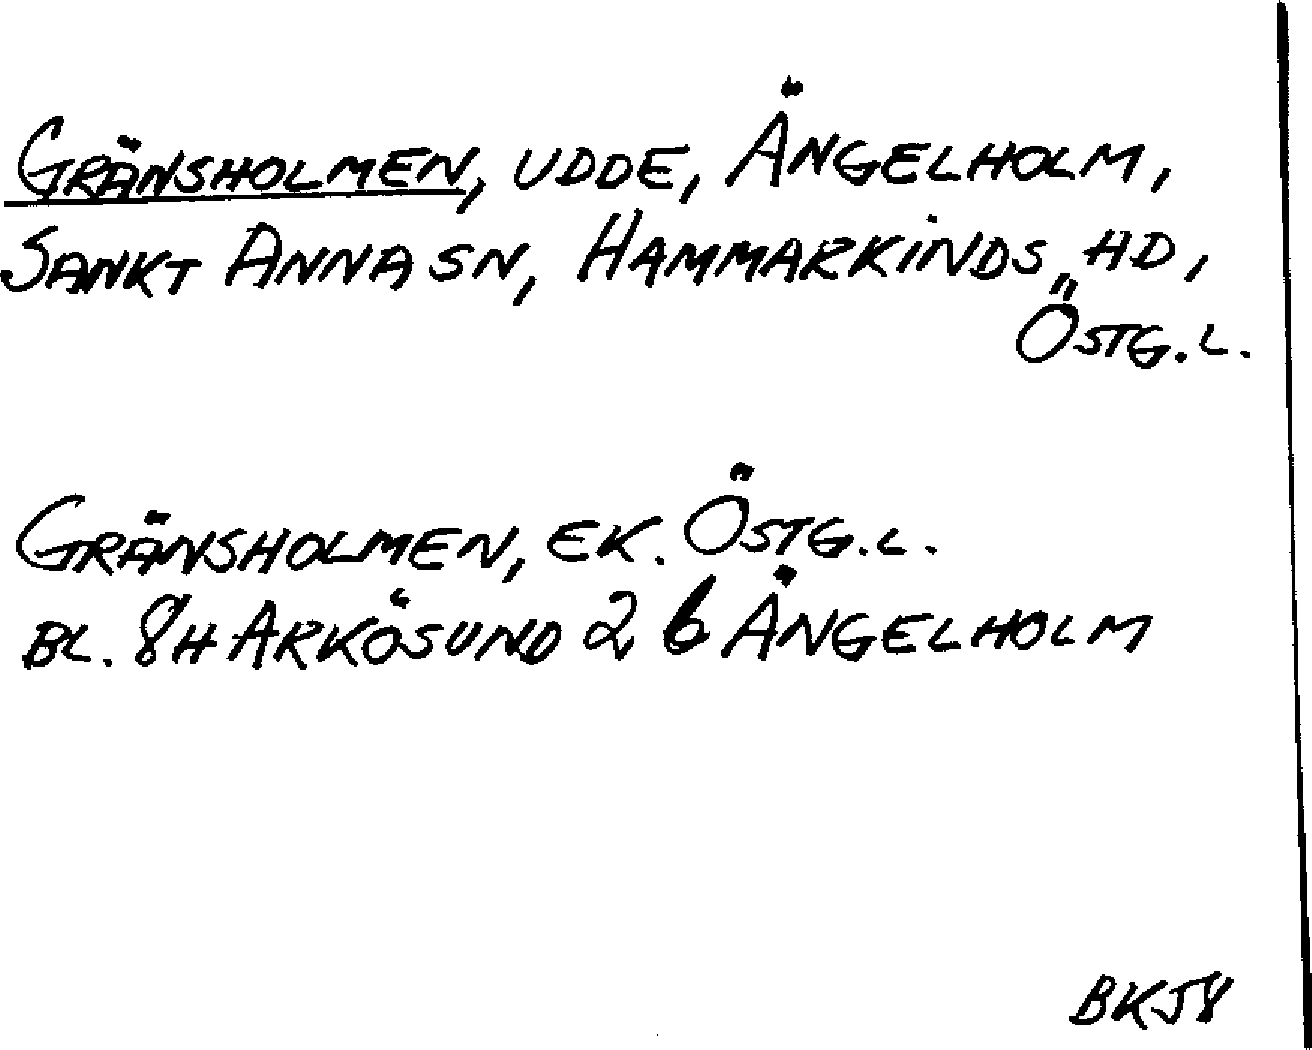 GRÄNSHOLMEN, UDDE, ÄNGELHOLM,
SANKT ANNA SN, HAMMARKINDS HD,
ÖSTG. L.
GRÄNSHOLMEN, EK. ÖSTG. L.
BL. 8H ARKÖSUND 2 b ÄNGELHOLM
BKJ8